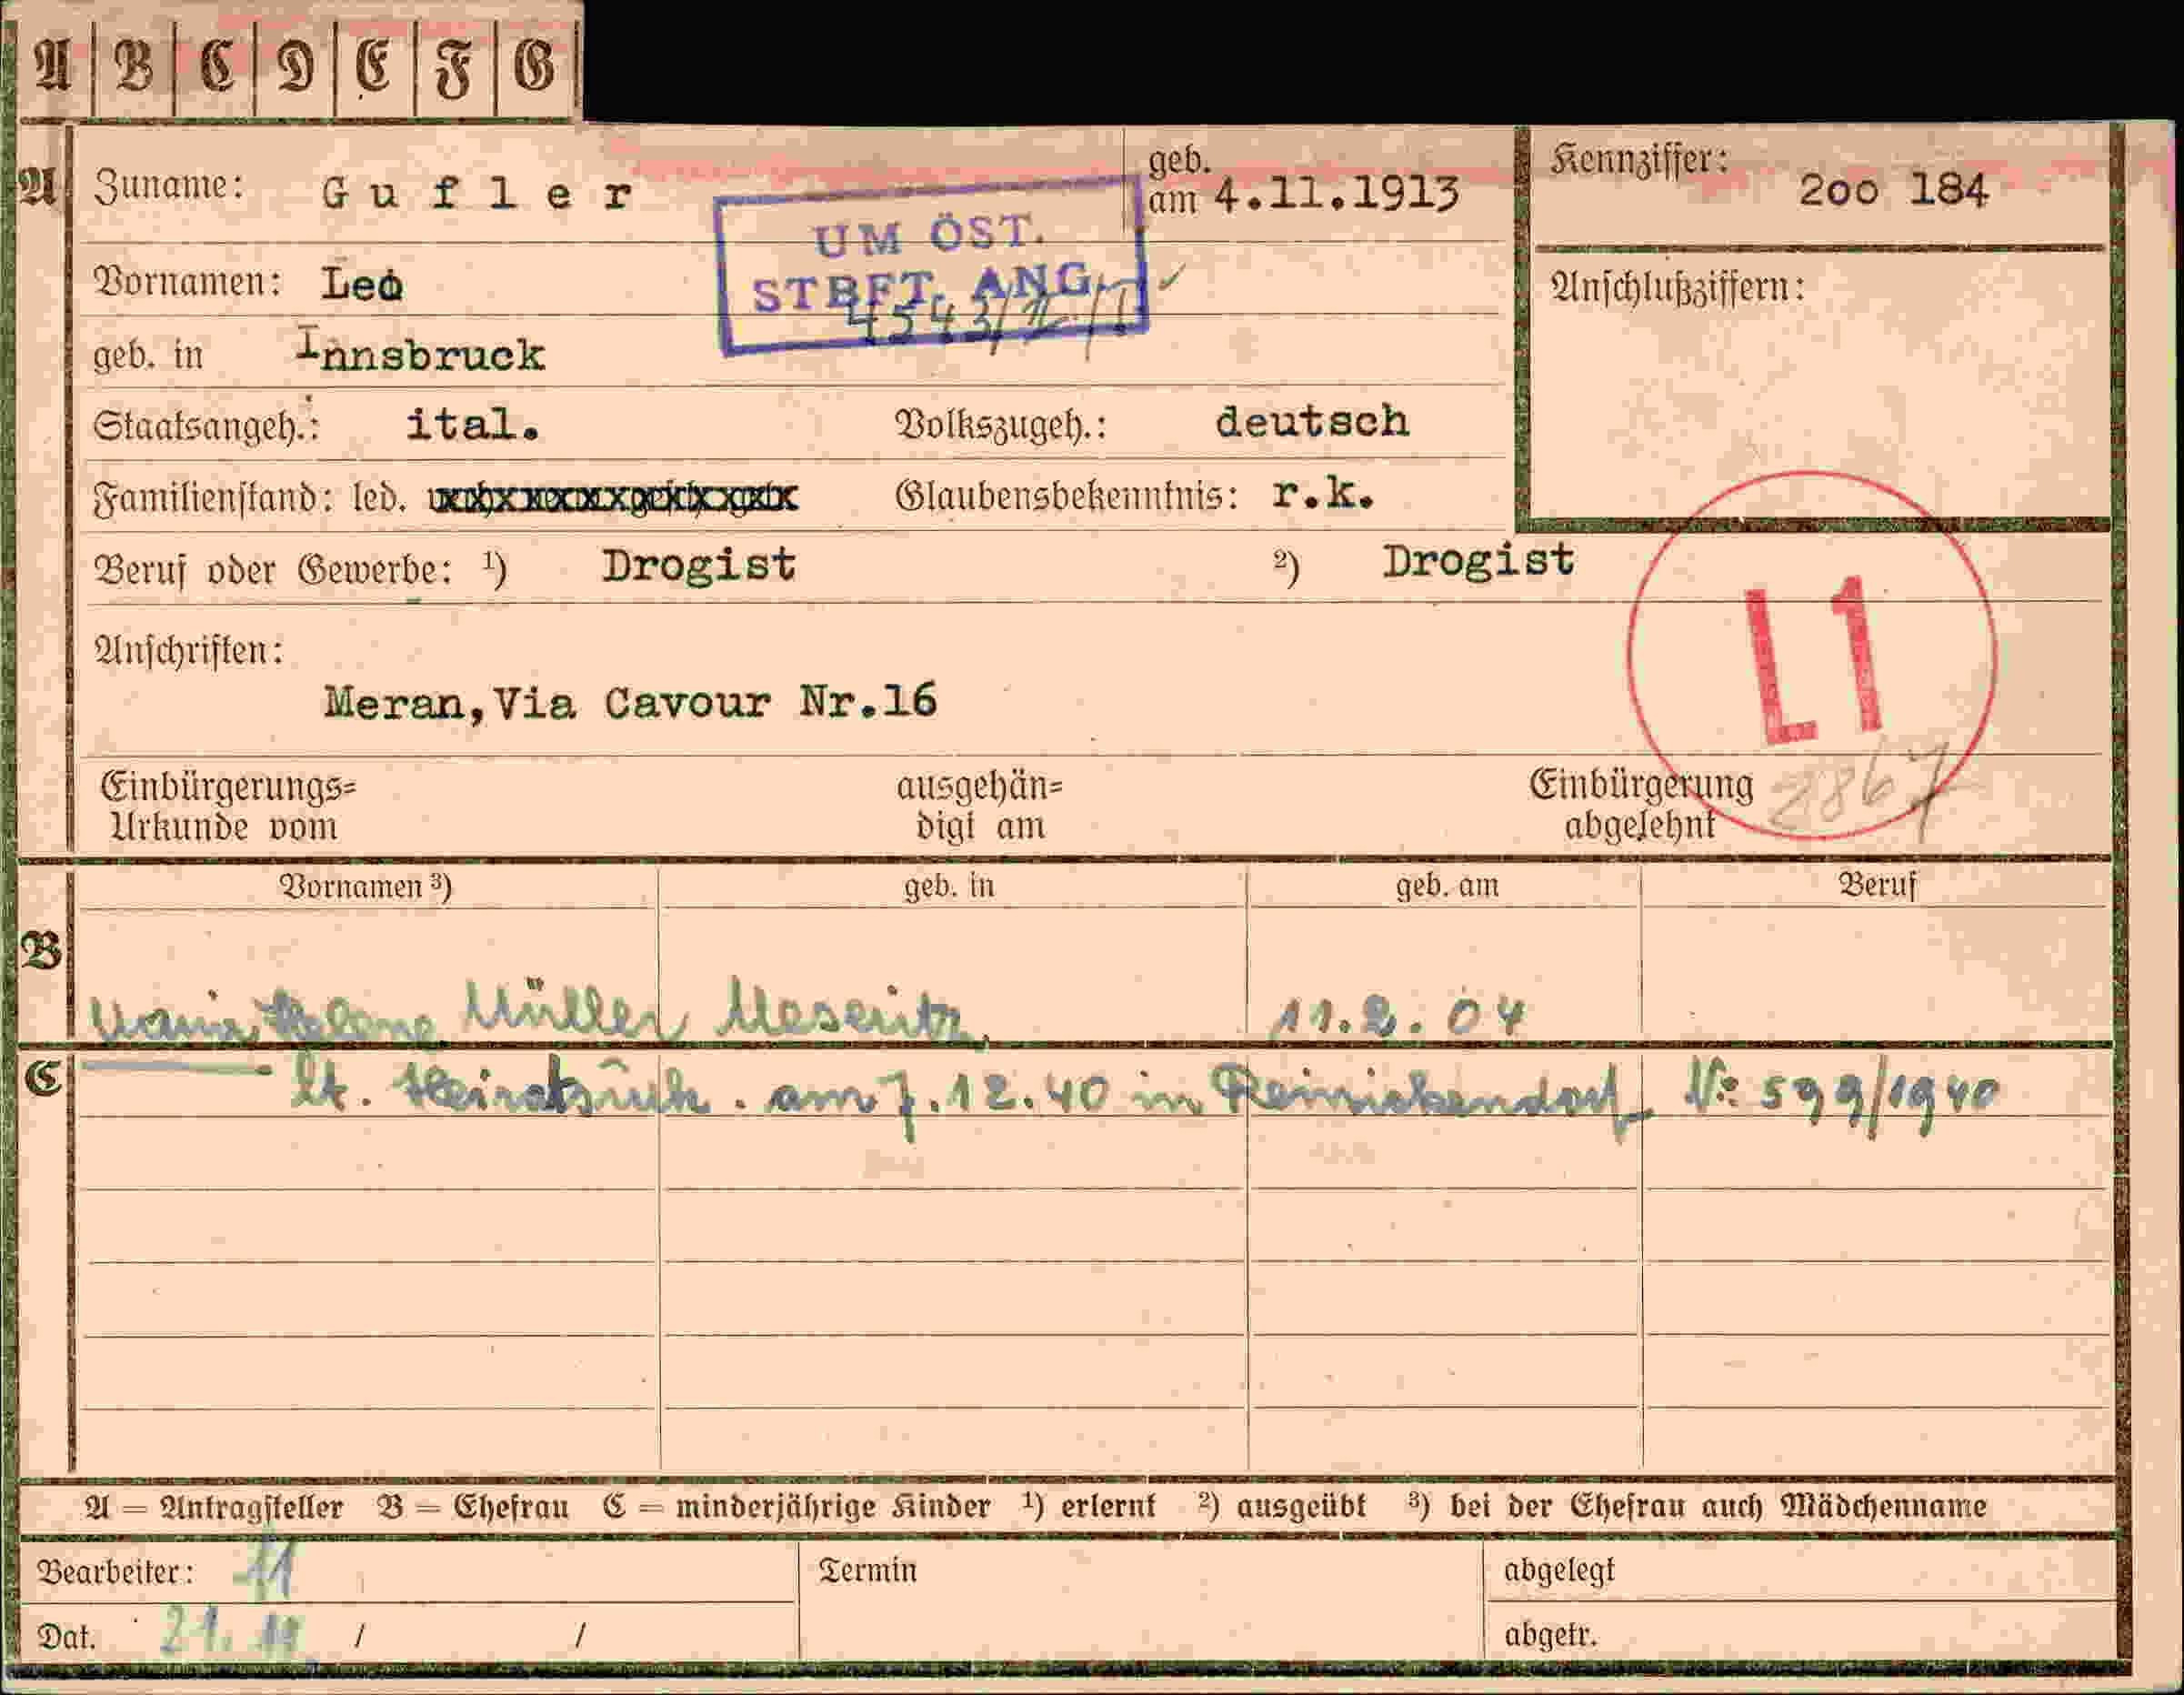 A B C D E F G
A Zuname: Gufler geb. am 4.11.1913 Kennziffer: 2oo 184
UM ÖST.
STBFT. ANG.
4543/II/1
Vornamen: Leo Anschlußziffern:
geb. in Innsbruck
Staatsangeh.: ital. Volkszugeh.: deutsch
Familienstand: led. Glaubensbekenntnis: r.k.
Beruf oder Gewerbe: 1) Drogist 2) Drogist
L1
Anschriften:
Meran, Via Cavour Nr.16
Einbürgerungs= ausgehän= Einbürgerung 2867
Urkunde vom digt am abgelehnt
Vornamen 3) geb. in geb. am Beruf
B
Maria Helene Müller Meseritz 11.2.04
C lt. Heiratsurk. am 7.12.40 in Reinickendorf Nr. 599/1940
A = Antragsteller B = Ehefrau C = minderjährige Kinder 1) erlernt 2) ausgeübt 3) bei der Ehefrau auch Mädchenname
Bearbeiter: 11 Termin abgelegt
Dat. 21. / / abgetr.